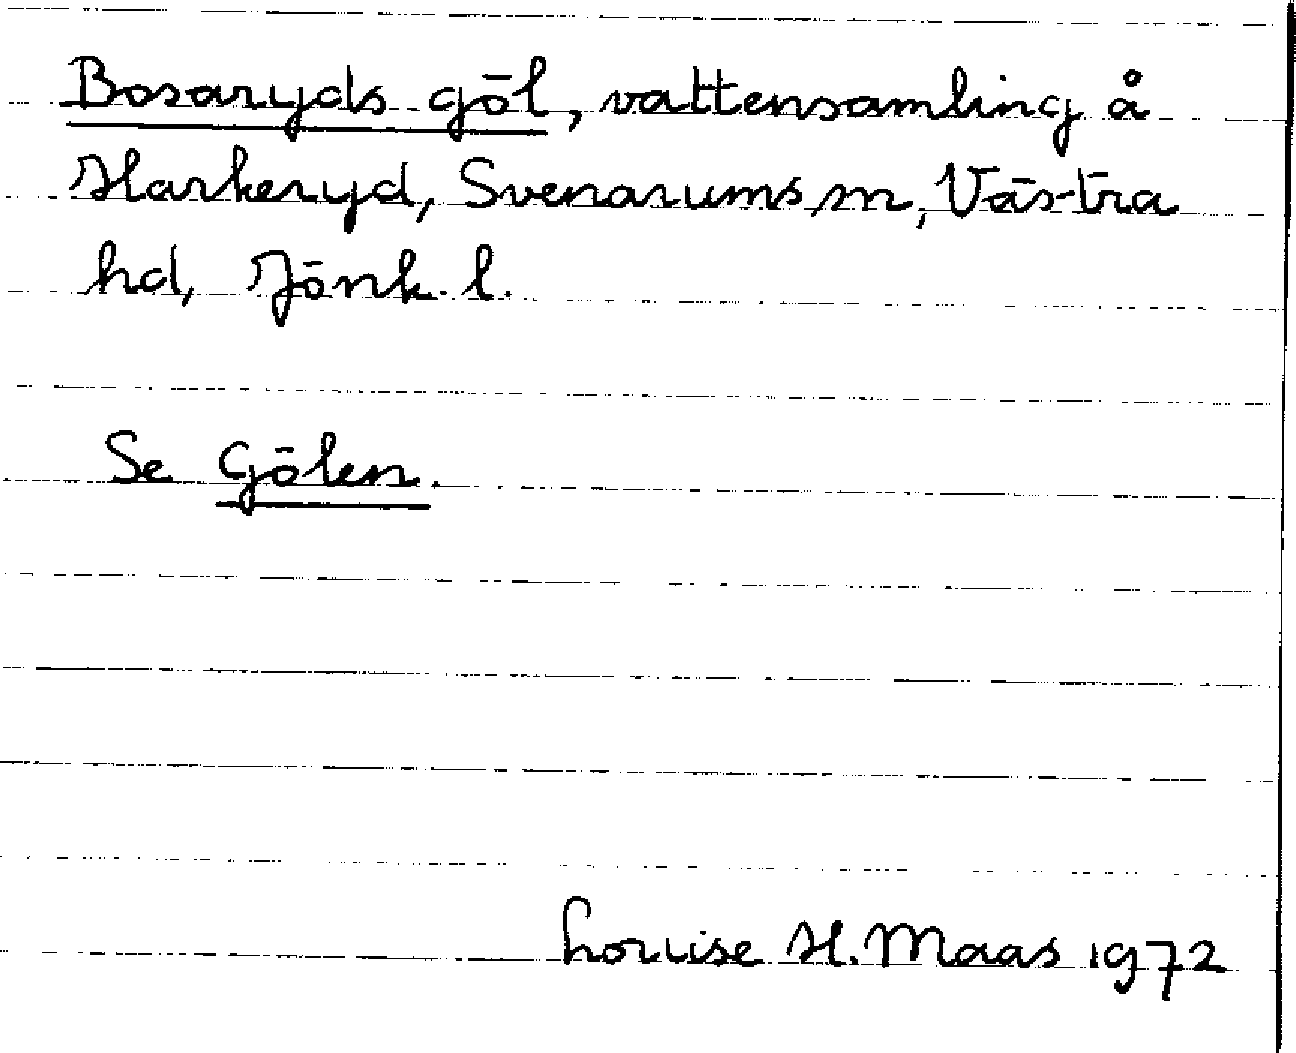 Bosaryds göl, vattensamling å
Harkeryd, Svenarums sn, Västra
hd, Jönk. l.
Se Gölen.
Louise H. Maas 1972